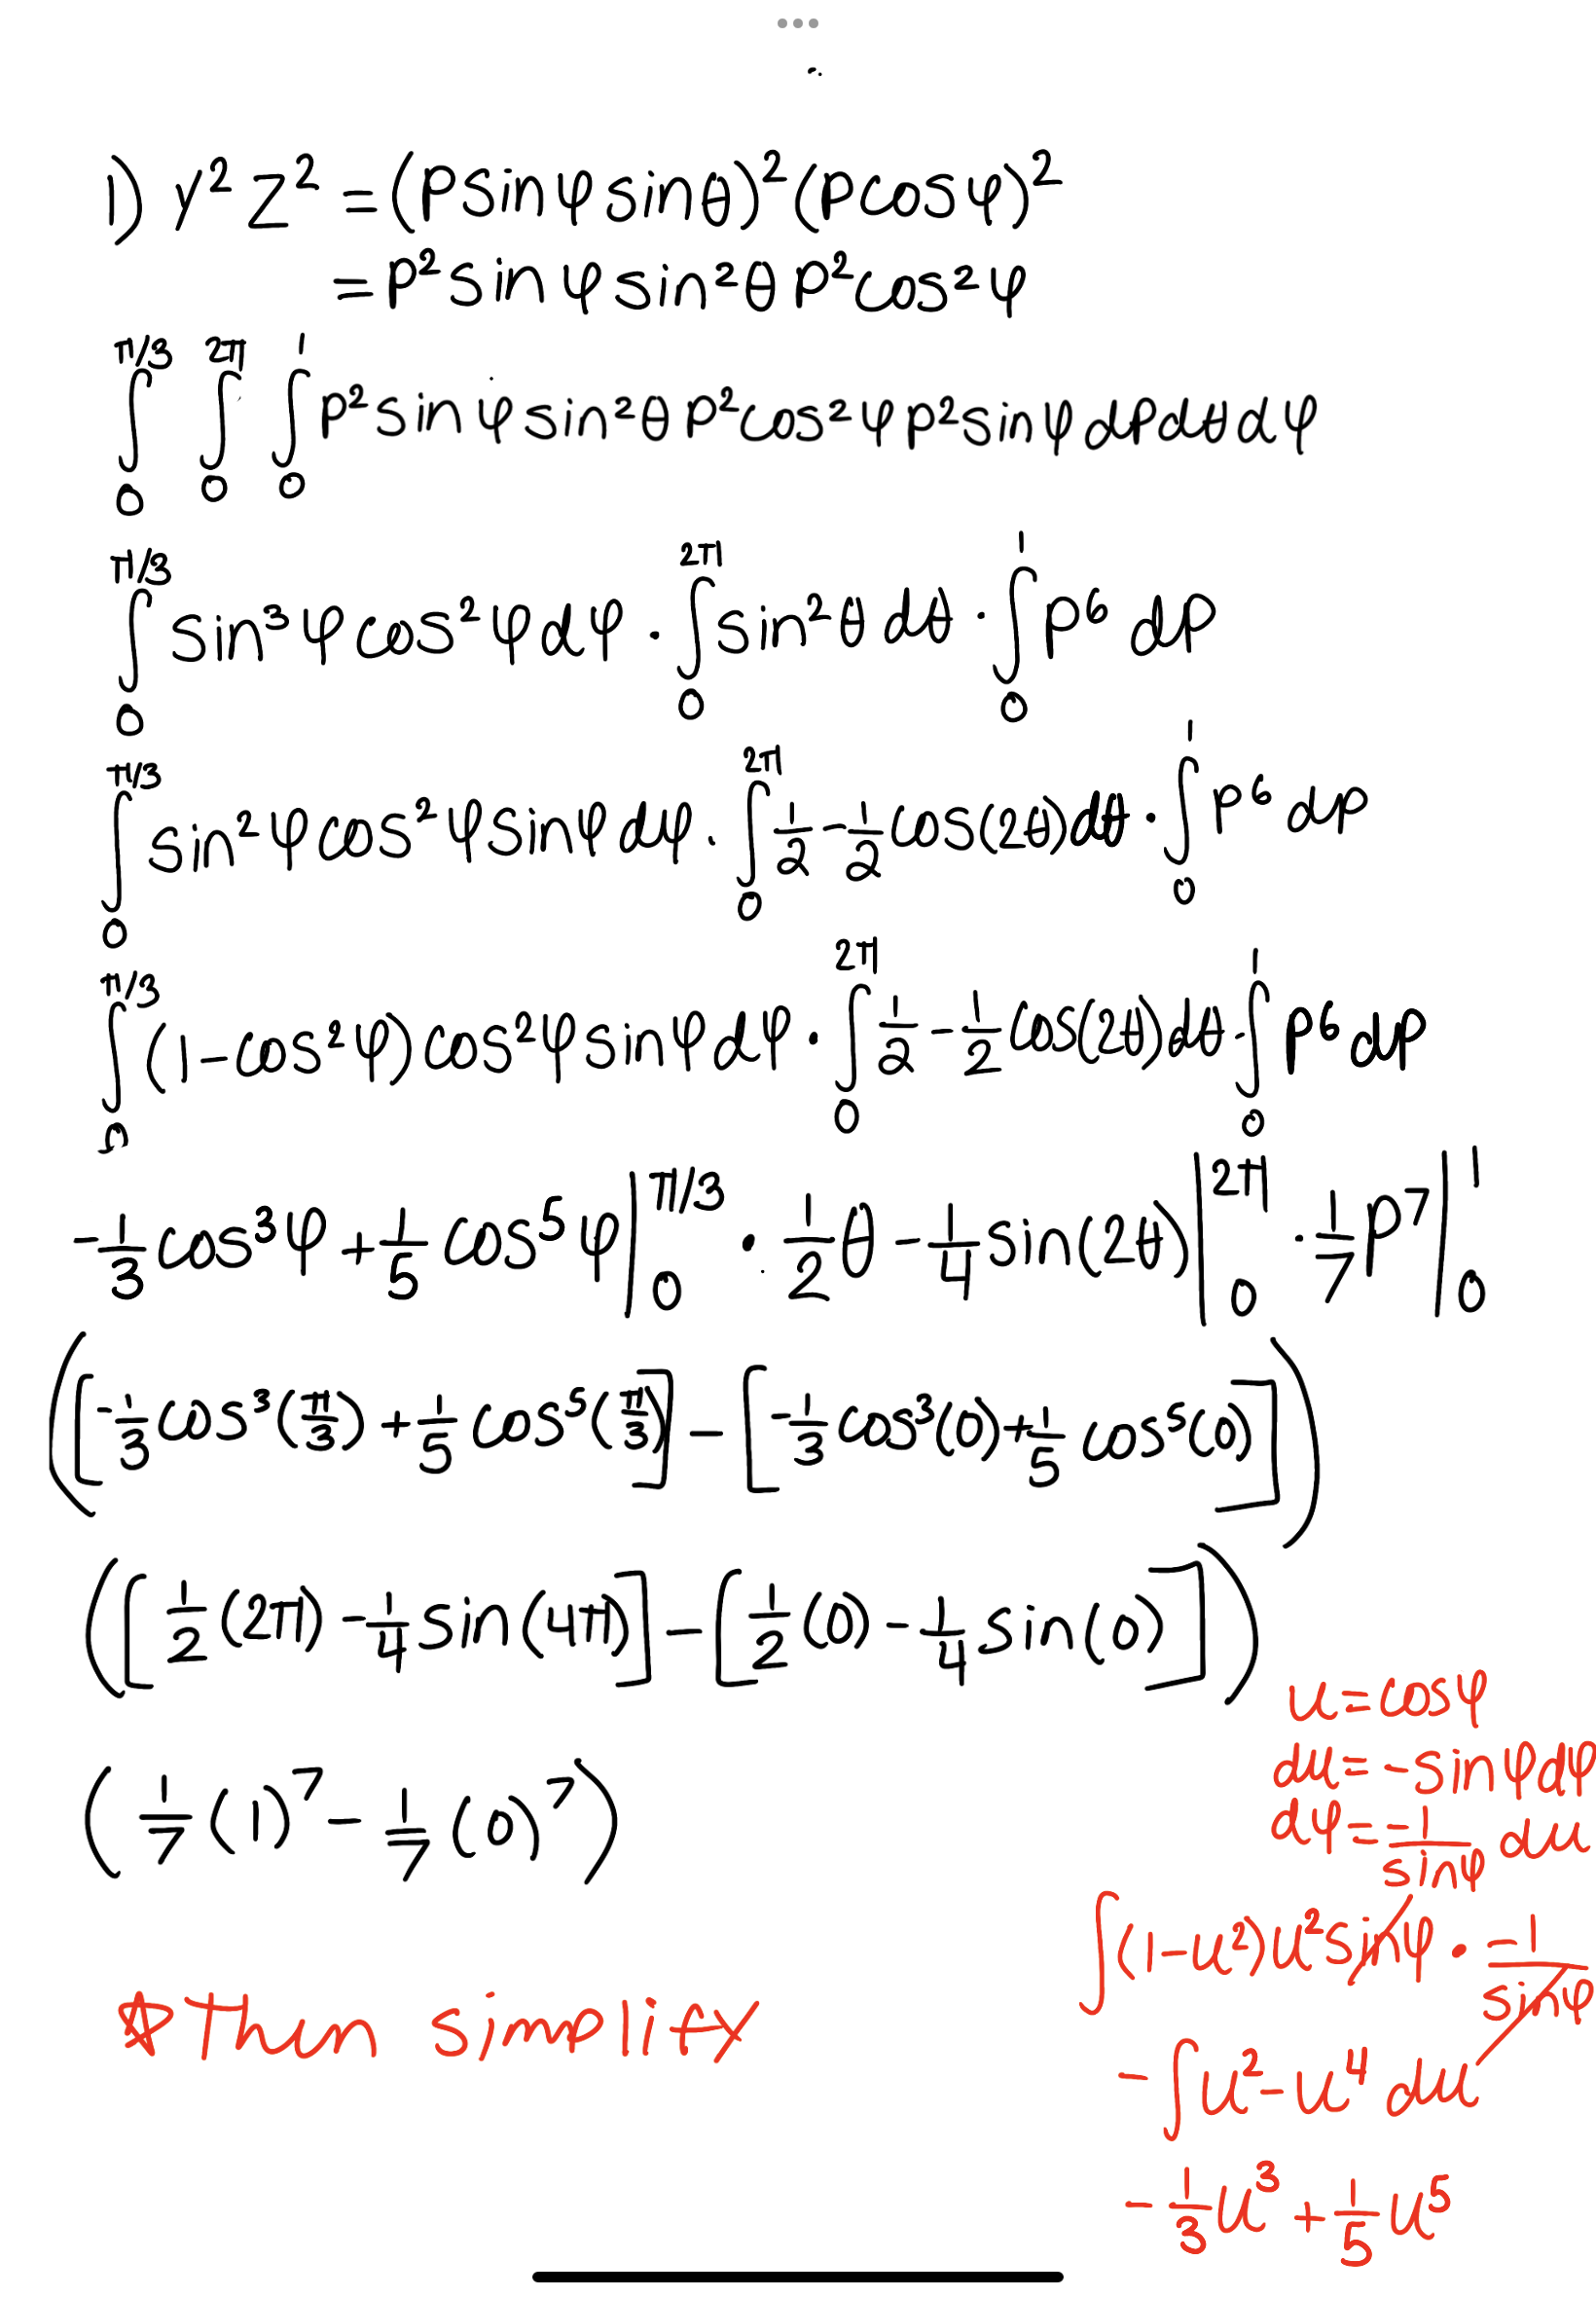 1) y² z² = (ρ sin φ sin θ)² (ρ cos φ)²
= ρ² sin φ sin² θ ρ² cos² φ
∫₀^{π/3} ∫₀^{2π} ∫₀^{1} ρ² sin φ sin² θ ρ² cos² φ ρ² sin φ dρ dθ dφ
∫₀^{π/3} sin³ φ cos² φ dφ · ∫₀^{2π} sin² θ dθ · ∫₀^{1} ρ⁶ dρ
∫₀^{π/3} sin² φ cos² φ sin φ dφ · ∫₀^{2π} 1/2 - 1/2 cos(2θ) dθ · ∫₀^{1} ρ⁶ dρ
∫₀^{π/3} (1 - cos² φ) cos² φ sin φ dφ · ∫₀^{2π} 1/2 - 1/2 cos(2θ) dθ · ∫₀^{1} ρ⁶ dρ
-1/3 cos³ φ + 1/5 cos⁵ φ |₀^{π/3} · 1/2 θ - 1/4 sin(2θ) |₀^{2π} · 1/7 ρ⁷ |₀^{1}
([-1/3 cos³(π/3) + 1/5 cos⁵(π/3)] - [-1/3 cos³(0) + 1/5 cos⁵(0)])
([1/2 (2π) - 1/4 sin(4π)] - [1/2 (0) - 1/4 sin(0)])
(1/7 (1)⁷ - 1/7 (0)⁷)
☆ Then simplify
u = cos φ
du = - sin φ dφ
dφ = -1/sin φ du
∫(1 - u²) u² sin φ · -1/sin φ
- ∫ u² - u⁴ du
- 1/3 u³ + 1/5 u⁵